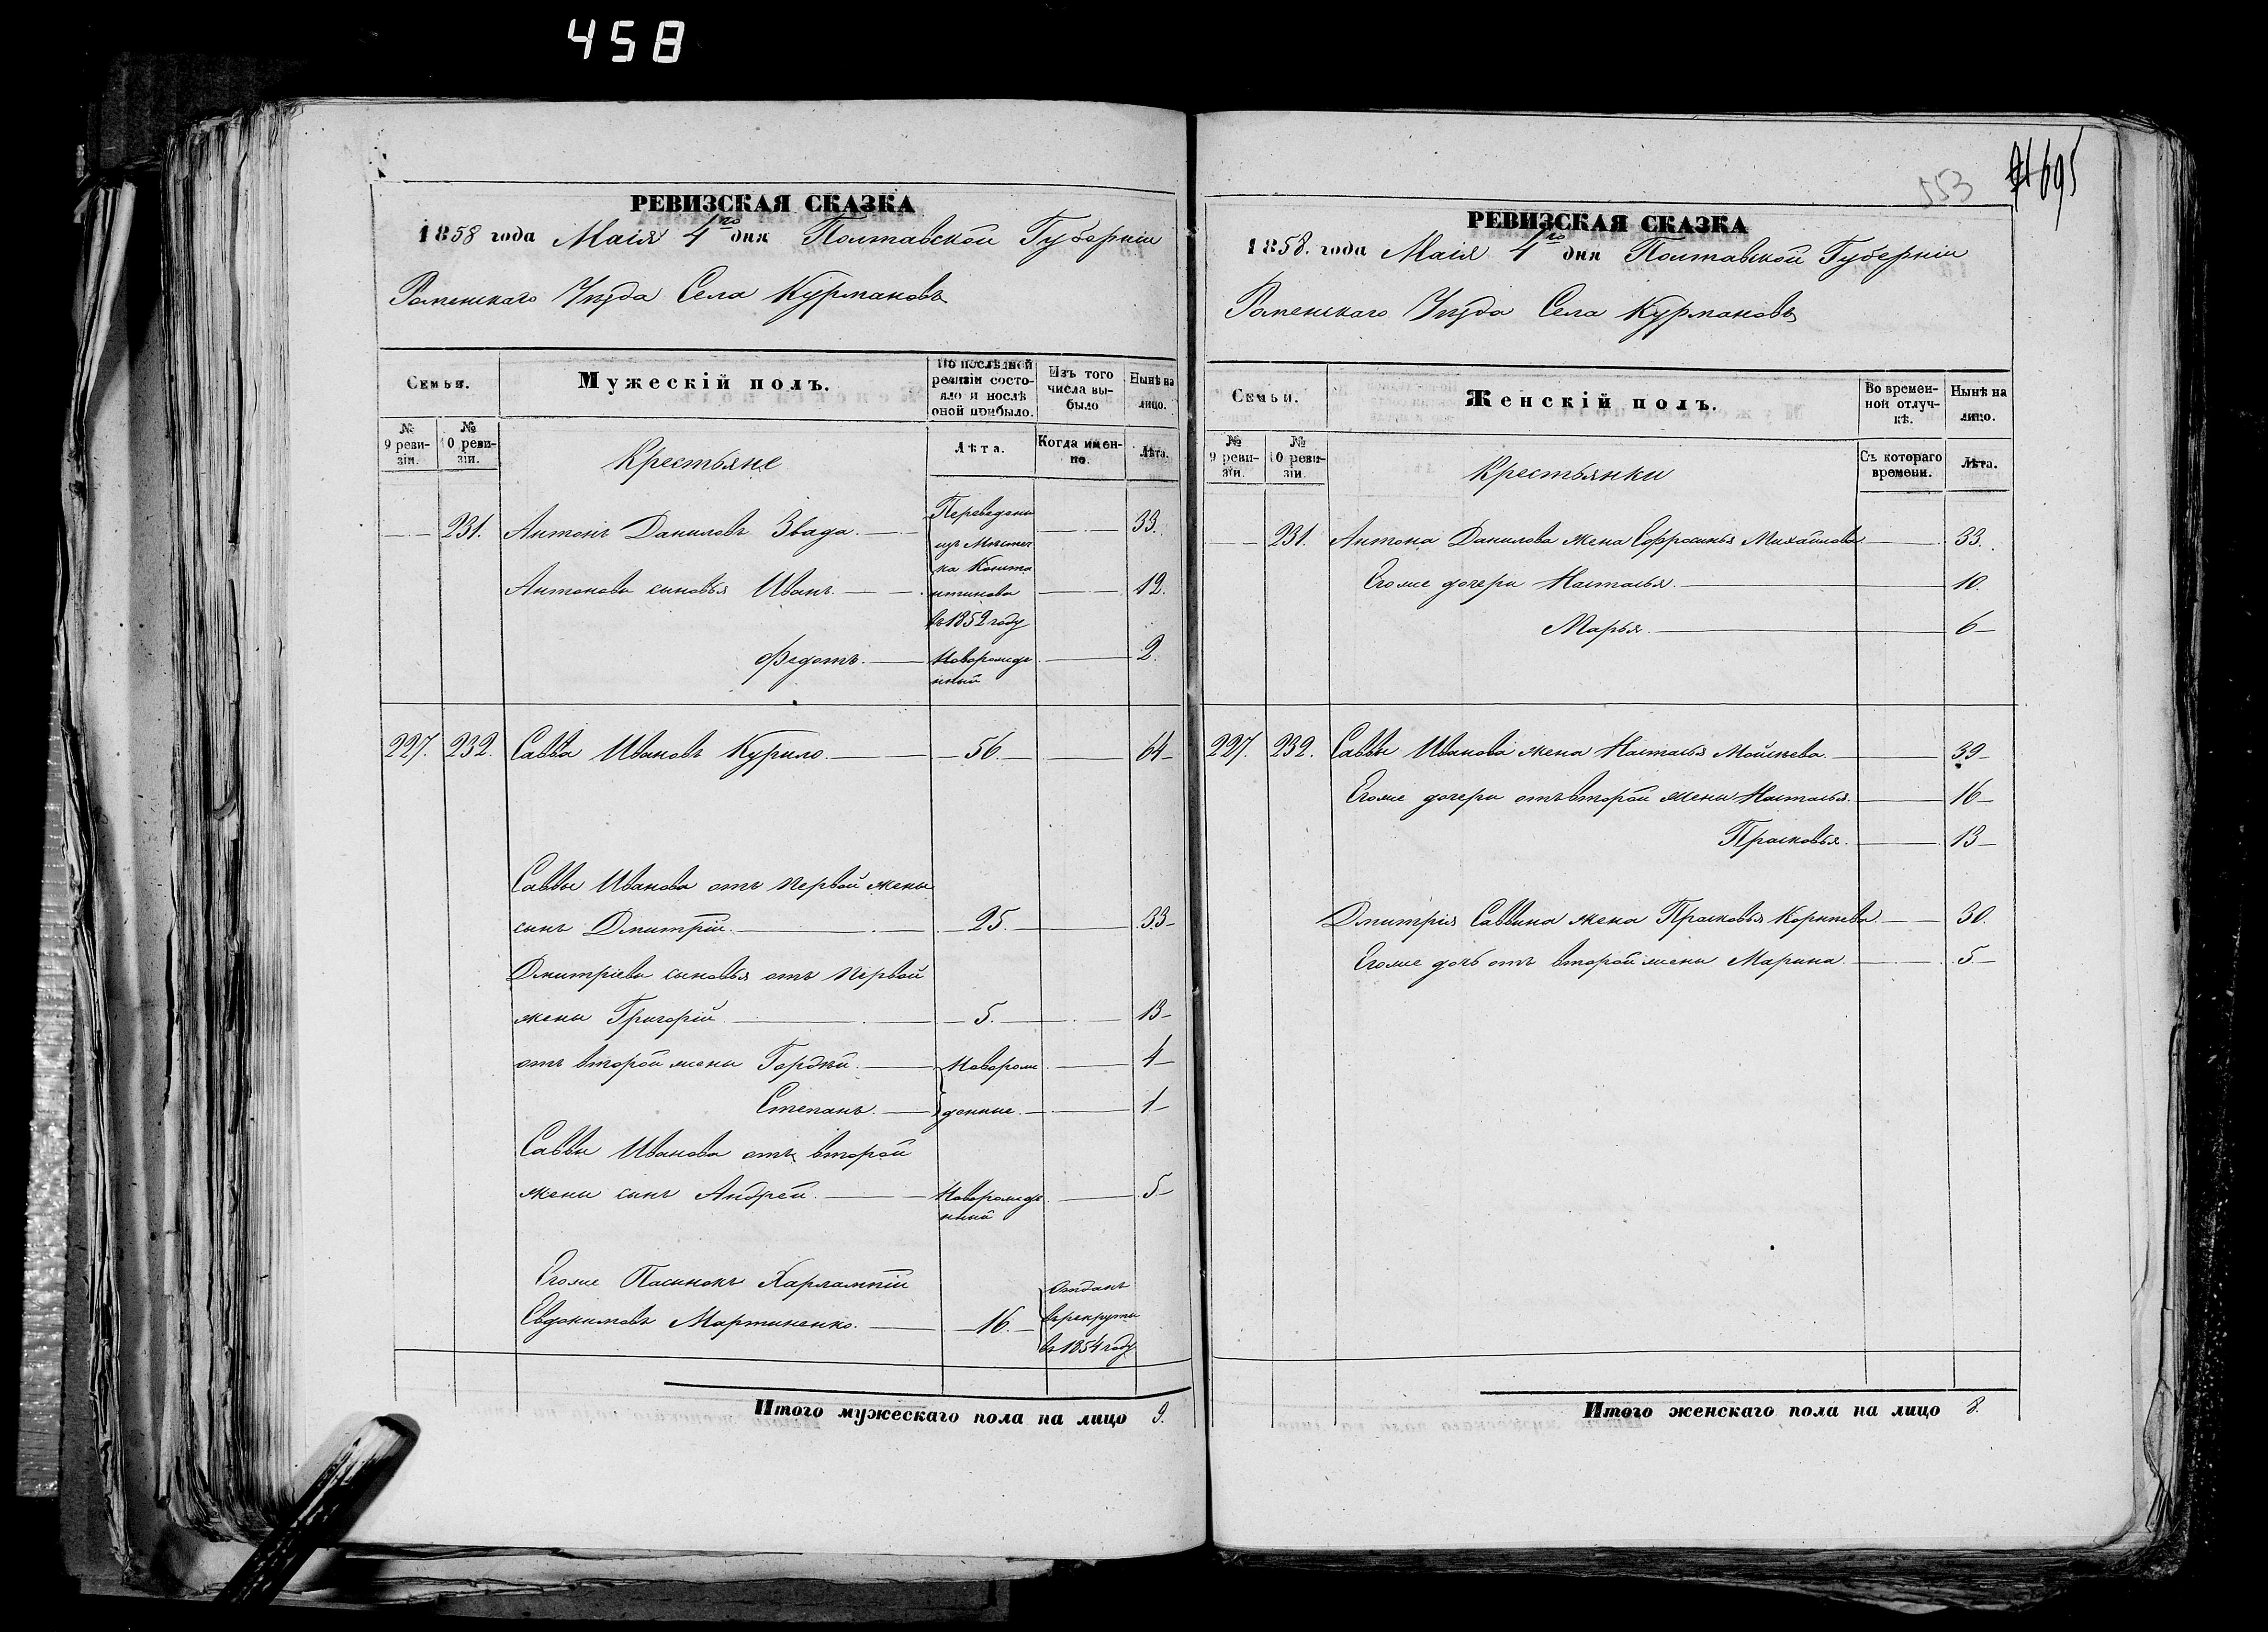 458
РЕВИЗСКАЯ СКАЗКА
1858 года Маія 4го дня Полтавской Губерніи
Роменскаго Уѣзда Села Курмановъ
Семья.
Мужескій полъ.
По послѣдной ревизіи состояло и послѣ оной прибыло.
Изъ того числа выбыло
Нынѣ на лицо.
№ 9 ревизіи.
№ 10 ревизіи.
Крестьяне
Лѣта.
Когда именно.
Лѣта.
231. Антонъ Даниловъ Звада. Переведены изъ Мѣстечка Константинова въ 1852 году 33.
Антонова сыновья Иванъ. 12.
Федотъ. Новорожденный 2.
227. 232. Савва Ивановъ Курило. 56. 64
Саввы Иванова отъ первой жены
сынъ Дмитрій. 25. 33
Дмитріева сыновья отъ первой
жены Григорій. 5. 13
отъ второй жены Гордѣй. Новорож 4
Степанъ. денные. 1
Саввы Иванова отъ второй
жены сынъ Андрей. Новорожденный 5
Егоже Пасынокъ Харлампій
Евдокимовъ Мартиненко. 16. отданъ въ рекруты въ 1854 году
Итого мужескаго пола на лицо 9.
553
695
РЕВИЗСКАЯ СКАЗКА
1858. года Маія 4го дня Полтавской Губерніи
Роменскаго Уѣзда Села Курмановъ
Семьи.
Женскій полъ.
Во временной отлучкѣ.
Нынѣ на лицо.
№ 9 ревизіи.
№ 10 ревизіи.
Крестьянки
Съ котораго времени.
Лѣта.
231. Антона Данилова жена Евфросинья Михайлова 33.
Егоже дочери Наталья. 10.
Марья. 6
227. 232. Саввы Иванова жена Наталья Мойсѣева. 39
Егоже дочери отъ второй жены Наталья. 16
Прасковья. 13
Дмитрія Саввина жена Прасковья Корнѣева 30.
Егоже дочь отъ второй жены Марина. 5.
Итого женскаго пола на лицо 8.